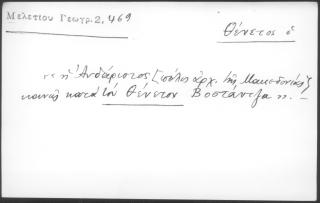 Μελετίου Γεωγρ. 2, 469
Θένετος ὁ
"ἡ Ἀνδάριστος [πόλις ἀρχ. τῆς Μακεδονίας]
κοινῶς κατὰ τὸν Θένετον Βοστάντζα".—